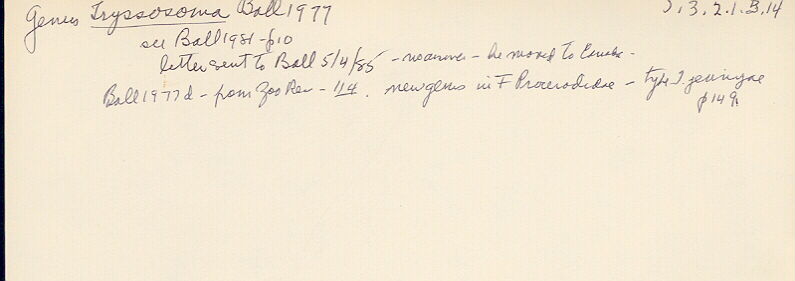 Genus Tryssosoma Ball 1977
), 3, 2.1.B.14
see Ball 1981 - p10
letter sent to Ball 5/4/85 - no answer - he moved to Canada -
Ball 1977d - from Zoo Rec - 114. new genus in F Procerodidae - type T. jennyae
p149